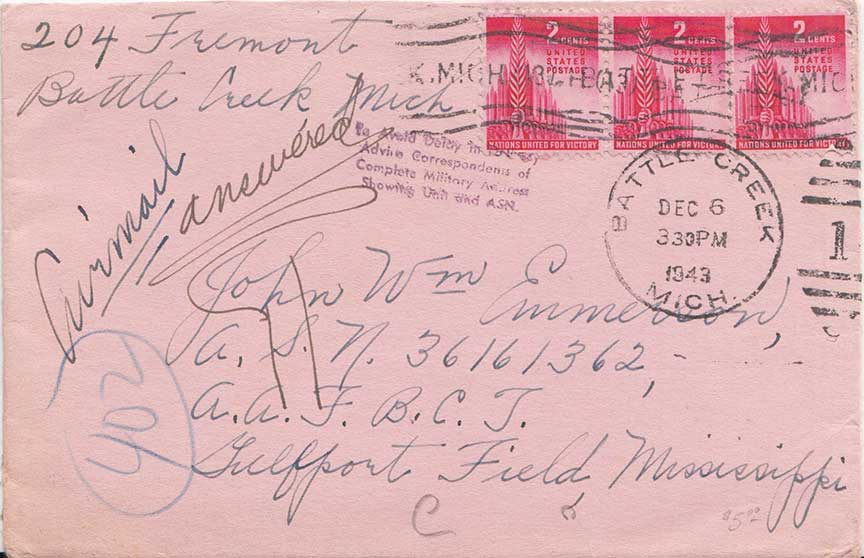 204 Fremont
Battle Creek Mich
Airmail
answered
2 CENTS UNITED STATES POSTAGE NATIONS UNITED FOR VICTORY
2 CENTS UNITED STATES POSTAGE NATIONS UNITED FOR VICTORY
2 CENTS UNITED STATES POSTAGE NATIONS UNITED FOR VICTORY
To Avoid Delay in
Advise Correspondents of
Complete Military Address
Showing Unit and ASN.
BATTLE CREEK
DEC 6
330PM
1943
MICH.
1
John Wm Emmerson,
A. S. N. 36161362,
A.A.F.B.C.T.
Gulfport Field Mississippi
402
C
$5.00